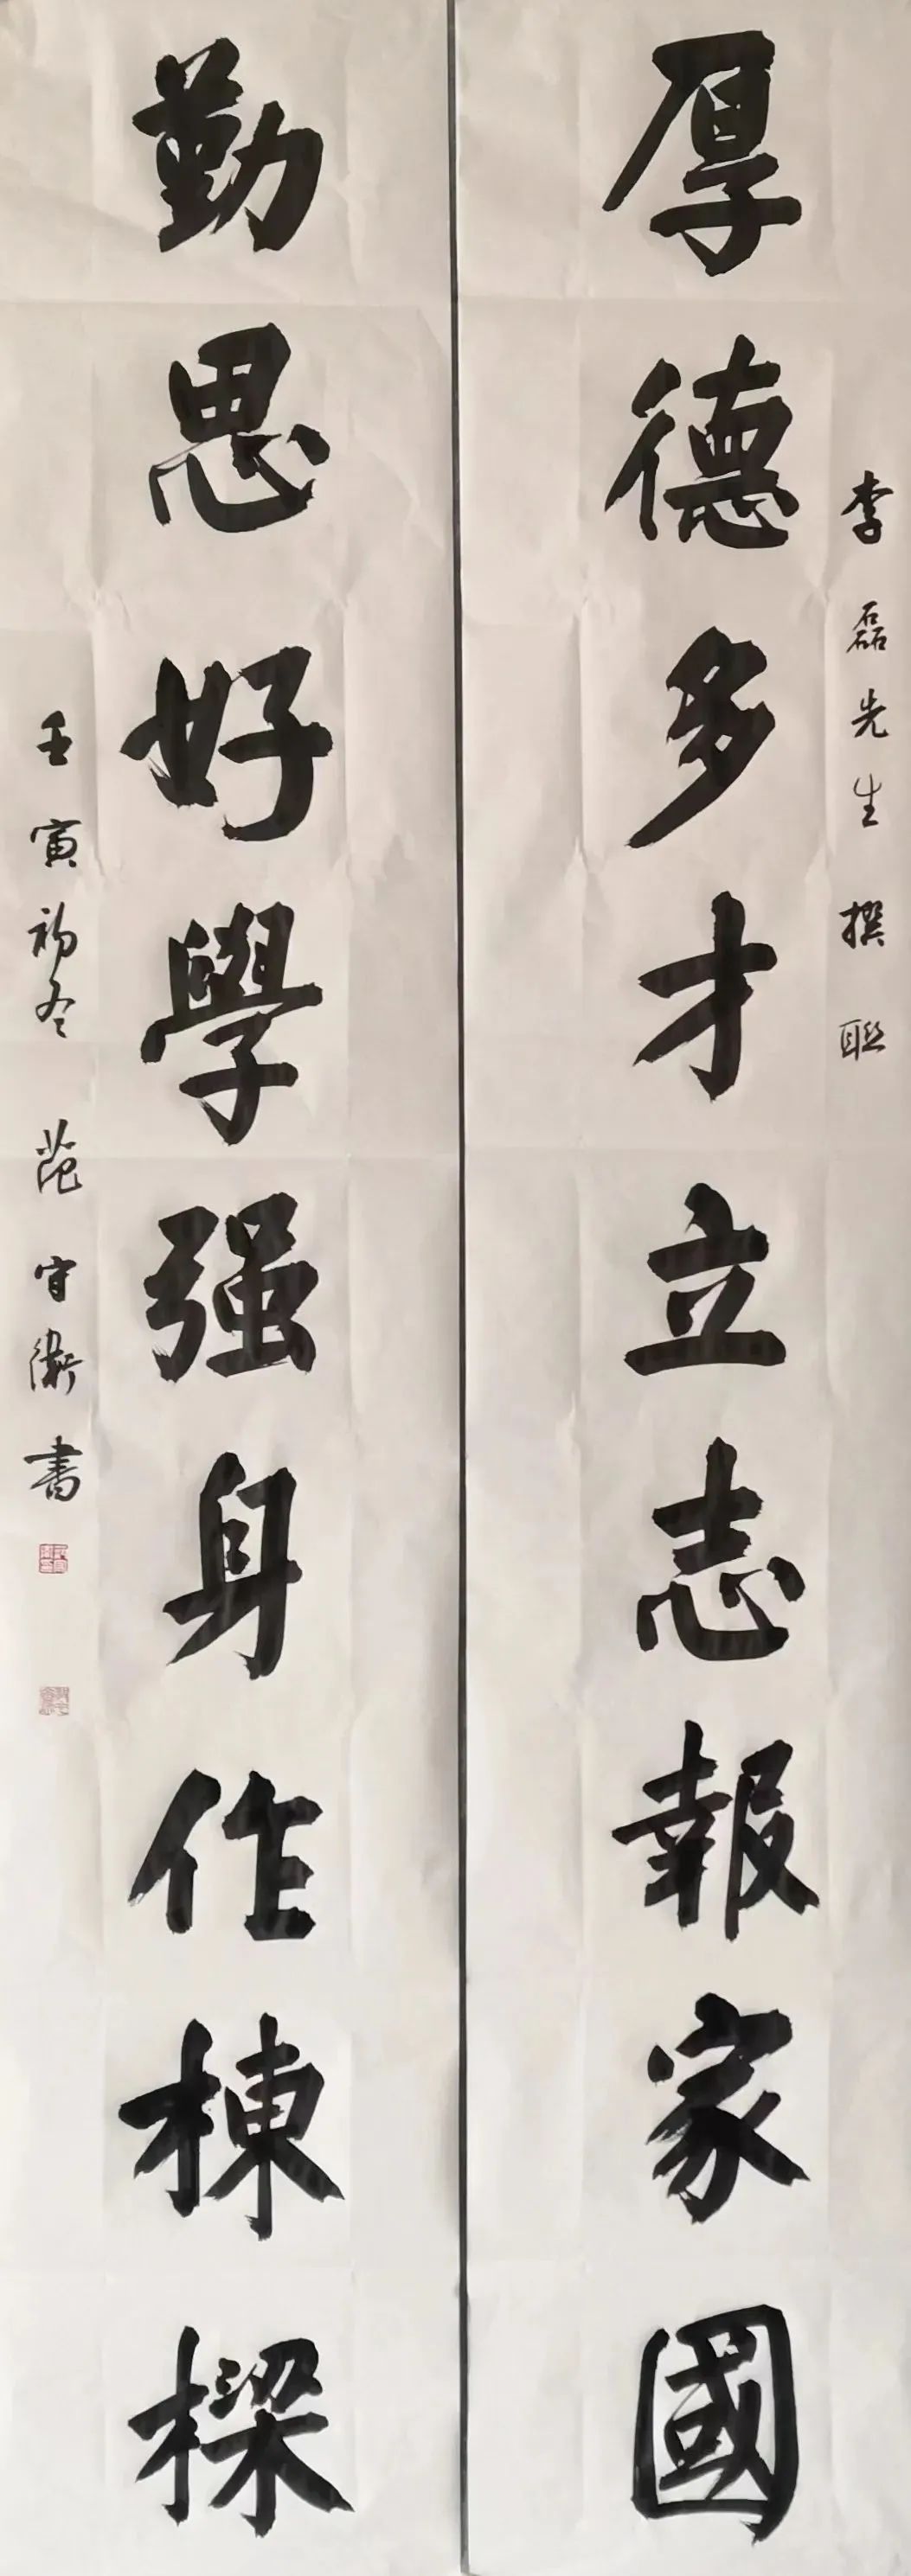 李磊先生撰聯
厚德多才立志報家國
勤思好學强身作棟樑
壬寅初冬 范守衛書